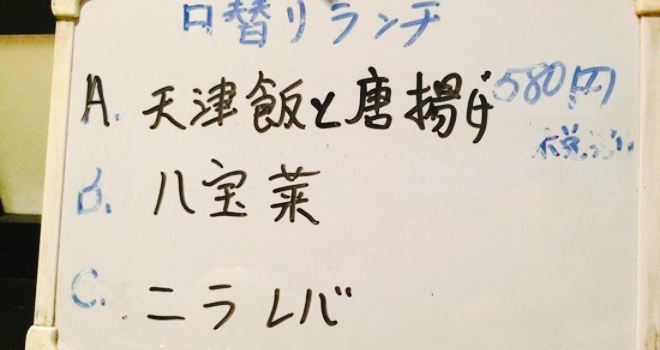 日替りランチ
A. 天津飯と唐揚げ 580円
B. 八宝菜
C. ニラレバ